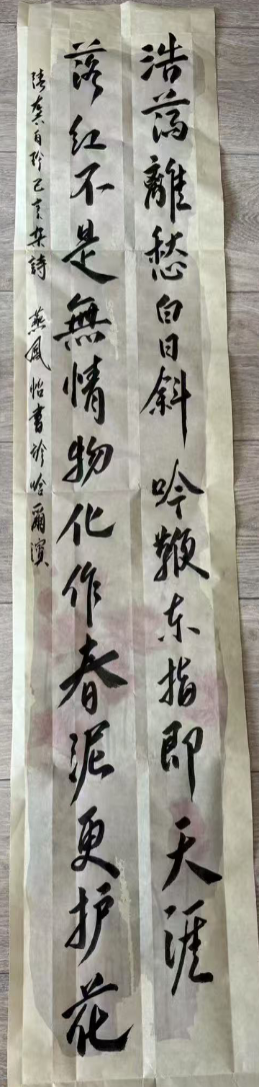 浩蕩離愁白日斜吟鞭东指即天涯
落红不是無情物化作春泥更护花
錄龚自珍己亥杂詩 燕凤怡書於哈爾濱